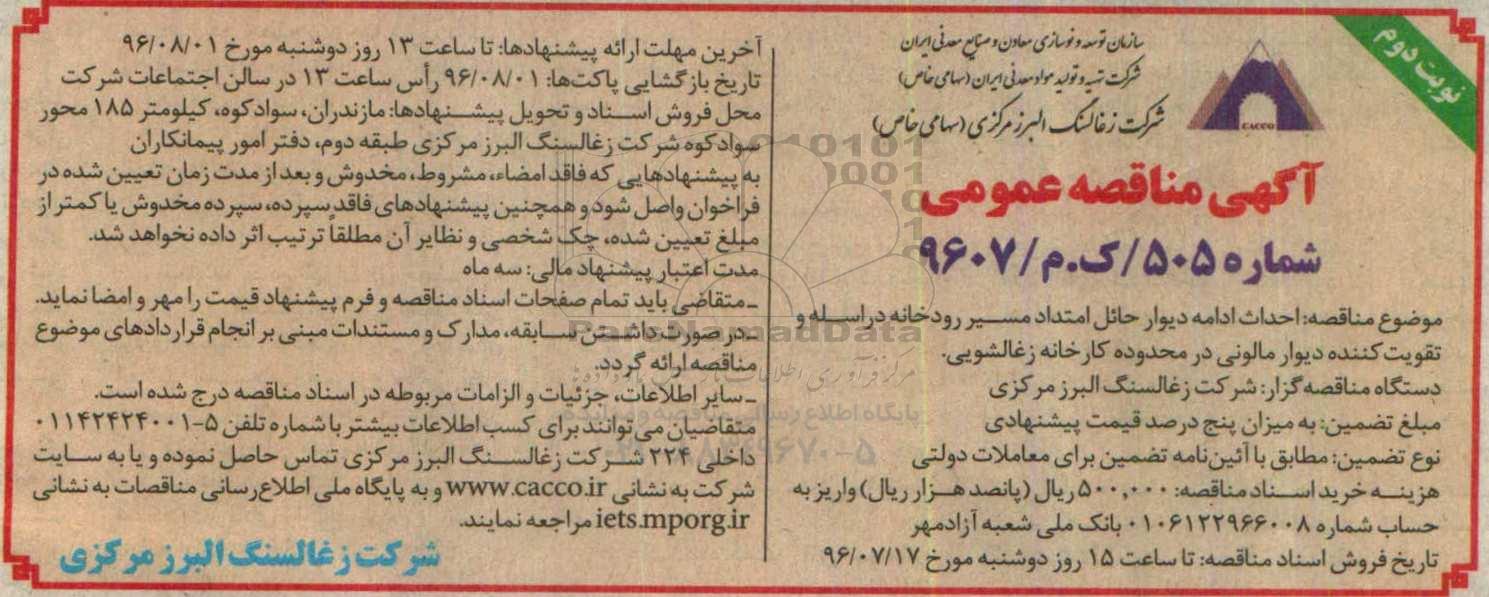 نوبت دوم
سازمان توسعه و نوسازی معادن و صنایع معدنی ایران
شرکت تهیه و تولید مواد معدنی ایران (سهامی خاص)
شرکت زغالسنگ البرز مرکزی (سهامی خاص)
CACCO
آگهی مناقصه عمومی
شماره ۵۰۵/ک.م/۹۶۰۷
موضوع مناقصه: احداث ادامه دیوار حائل امتداد مسیر رودخانه دراسله و
تقویت کننده دیوار مالونی در محدوده کارخانه زغالشویی.
دستگاه مناقصه گزار: شرکت زغالسنگ البرز مرکزی
مبلغ تضمین: به میزان پنج درصد قیمت پیشنهادی
نوع تضمین: مطابق با آئین‌نامه تضمین برای معاملات دولتی
هزینه خرید اسناد مناقصه: ۵۰۰,۰۰۰ ریال (پانصد هزار ریال) واریز به
حساب شماره ۰۱۰۶۱۲۲۹۶۶۰۰۸ بانک ملی شعبه آزادمهر
تاریخ فروش اسناد مناقصه: تا ساعت ۱۵ روز دوشنبه مورخ ۹۶/۰۷/۱۷
آخرین مهلت ارائه پیشنهادها: تا ساعت ۱۳ روز دوشنبه مورخ ۹۶/۰۸/۰۱
تاریخ بازگشایی پاکت‌ها: ۹۶/۰۸/۰۱ رأس ساعت ۱۳ در سالن اجتماعات شرکت
محل فروش اسناد و تحویل پیشنهادها: مازندران، سوادکوه، کیلومتر ۱۸۵ محور
سوادکوه شرکت زغالسنگ البرز مرکزی طبقه دوم، دفتر امور پیمانکاران
به پیشنهادهایی که فاقد امضاء، مشروط، مخدوش و بعد از مدت زمان تعیین شده در
فراخوان واصل شود و همچنین پیشنهادهای فاقد سپرده، سپرده مخدوش یا کمتر از
مبلغ تعیین شده، چک شخصی و نظایر آن مطلقاً ترتیب اثر داده نخواهد شد.
مدت اعتبار پیشنهاد مالی: سه ماه
ـ متقاضی باید تمام صفحات اسناد مناقصه و فرم پیشنهاد قیمت را مهر و امضا نماید.
ـ در صورت داشتن سابقه، مدارک و مستندات مبنی بر انجام قراردادهای موضوع
مناقصه ارائه گردد.
ـ سایر اطلاعات، جزئیات و الزامات مربوطه در اسناد مناقصه درج شده است.
متقاضیان می‌توانند برای کسب اطلاعات بیشتر با شماره تلفن ۵-۰۱۱۴۲۴۲۴۰۰۱
داخلی ۲۲۴ شرکت زغالسنگ البرز مرکزی تماس حاصل نموده و یا به سایت
شرکت به نشانی www.cacco.ir و به پایگاه ملی اطلاع‌رسانی مناقصات به نشانی
iets.mporg.ir مراجعه نمایند.
شرکت زغالسنگ البرز مرکزی
ParsNamadData